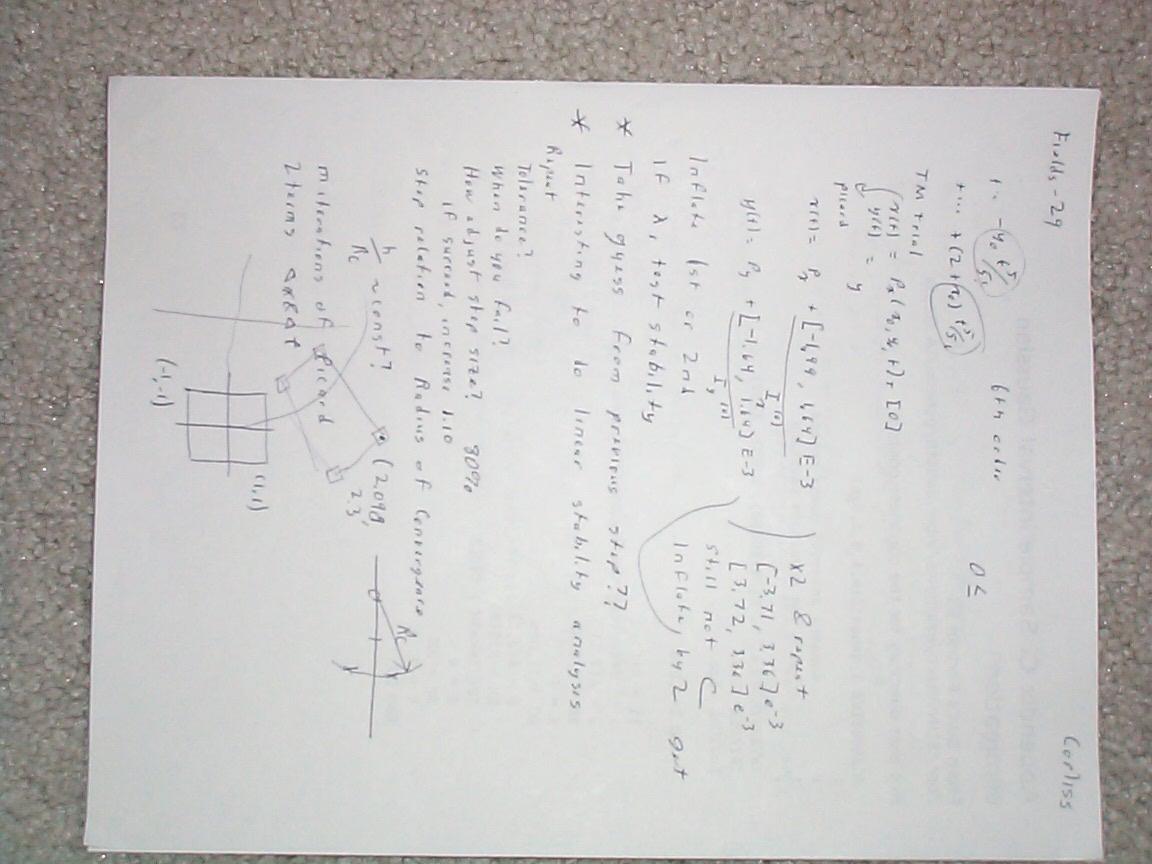 Fields - 29 Corliss
6th order
+... + (2+x₀) t⁵/5!
TM trial
x(t) = P₈(x₀, y₀, t) + [0]
y(t) = y
picard
x(t) = P₈ + [-1.99, 1.64] E-3
y(t) = P₈ + [-1.64, 1.64] E-3
X2 & repeat
[-3.71, 3.36] e⁻³
[3.72, 3.36] e⁻³
still not ⊂
Inflate, by 2 get
Inflate 1st or 2nd
If λ, test stability
* Take guess from previous step??
* Interesting to do linear stability analyses
Repeat
Tolerance?
When do you fail?
How adjust step size? 80%
if succeed, increase 1.10
Step relation to Radius of Convergence
h/Rc ≈ const?
Rc
m iterations of Picard
2 terms
(2.098,
2.3
(1,1)
(-1,-1)